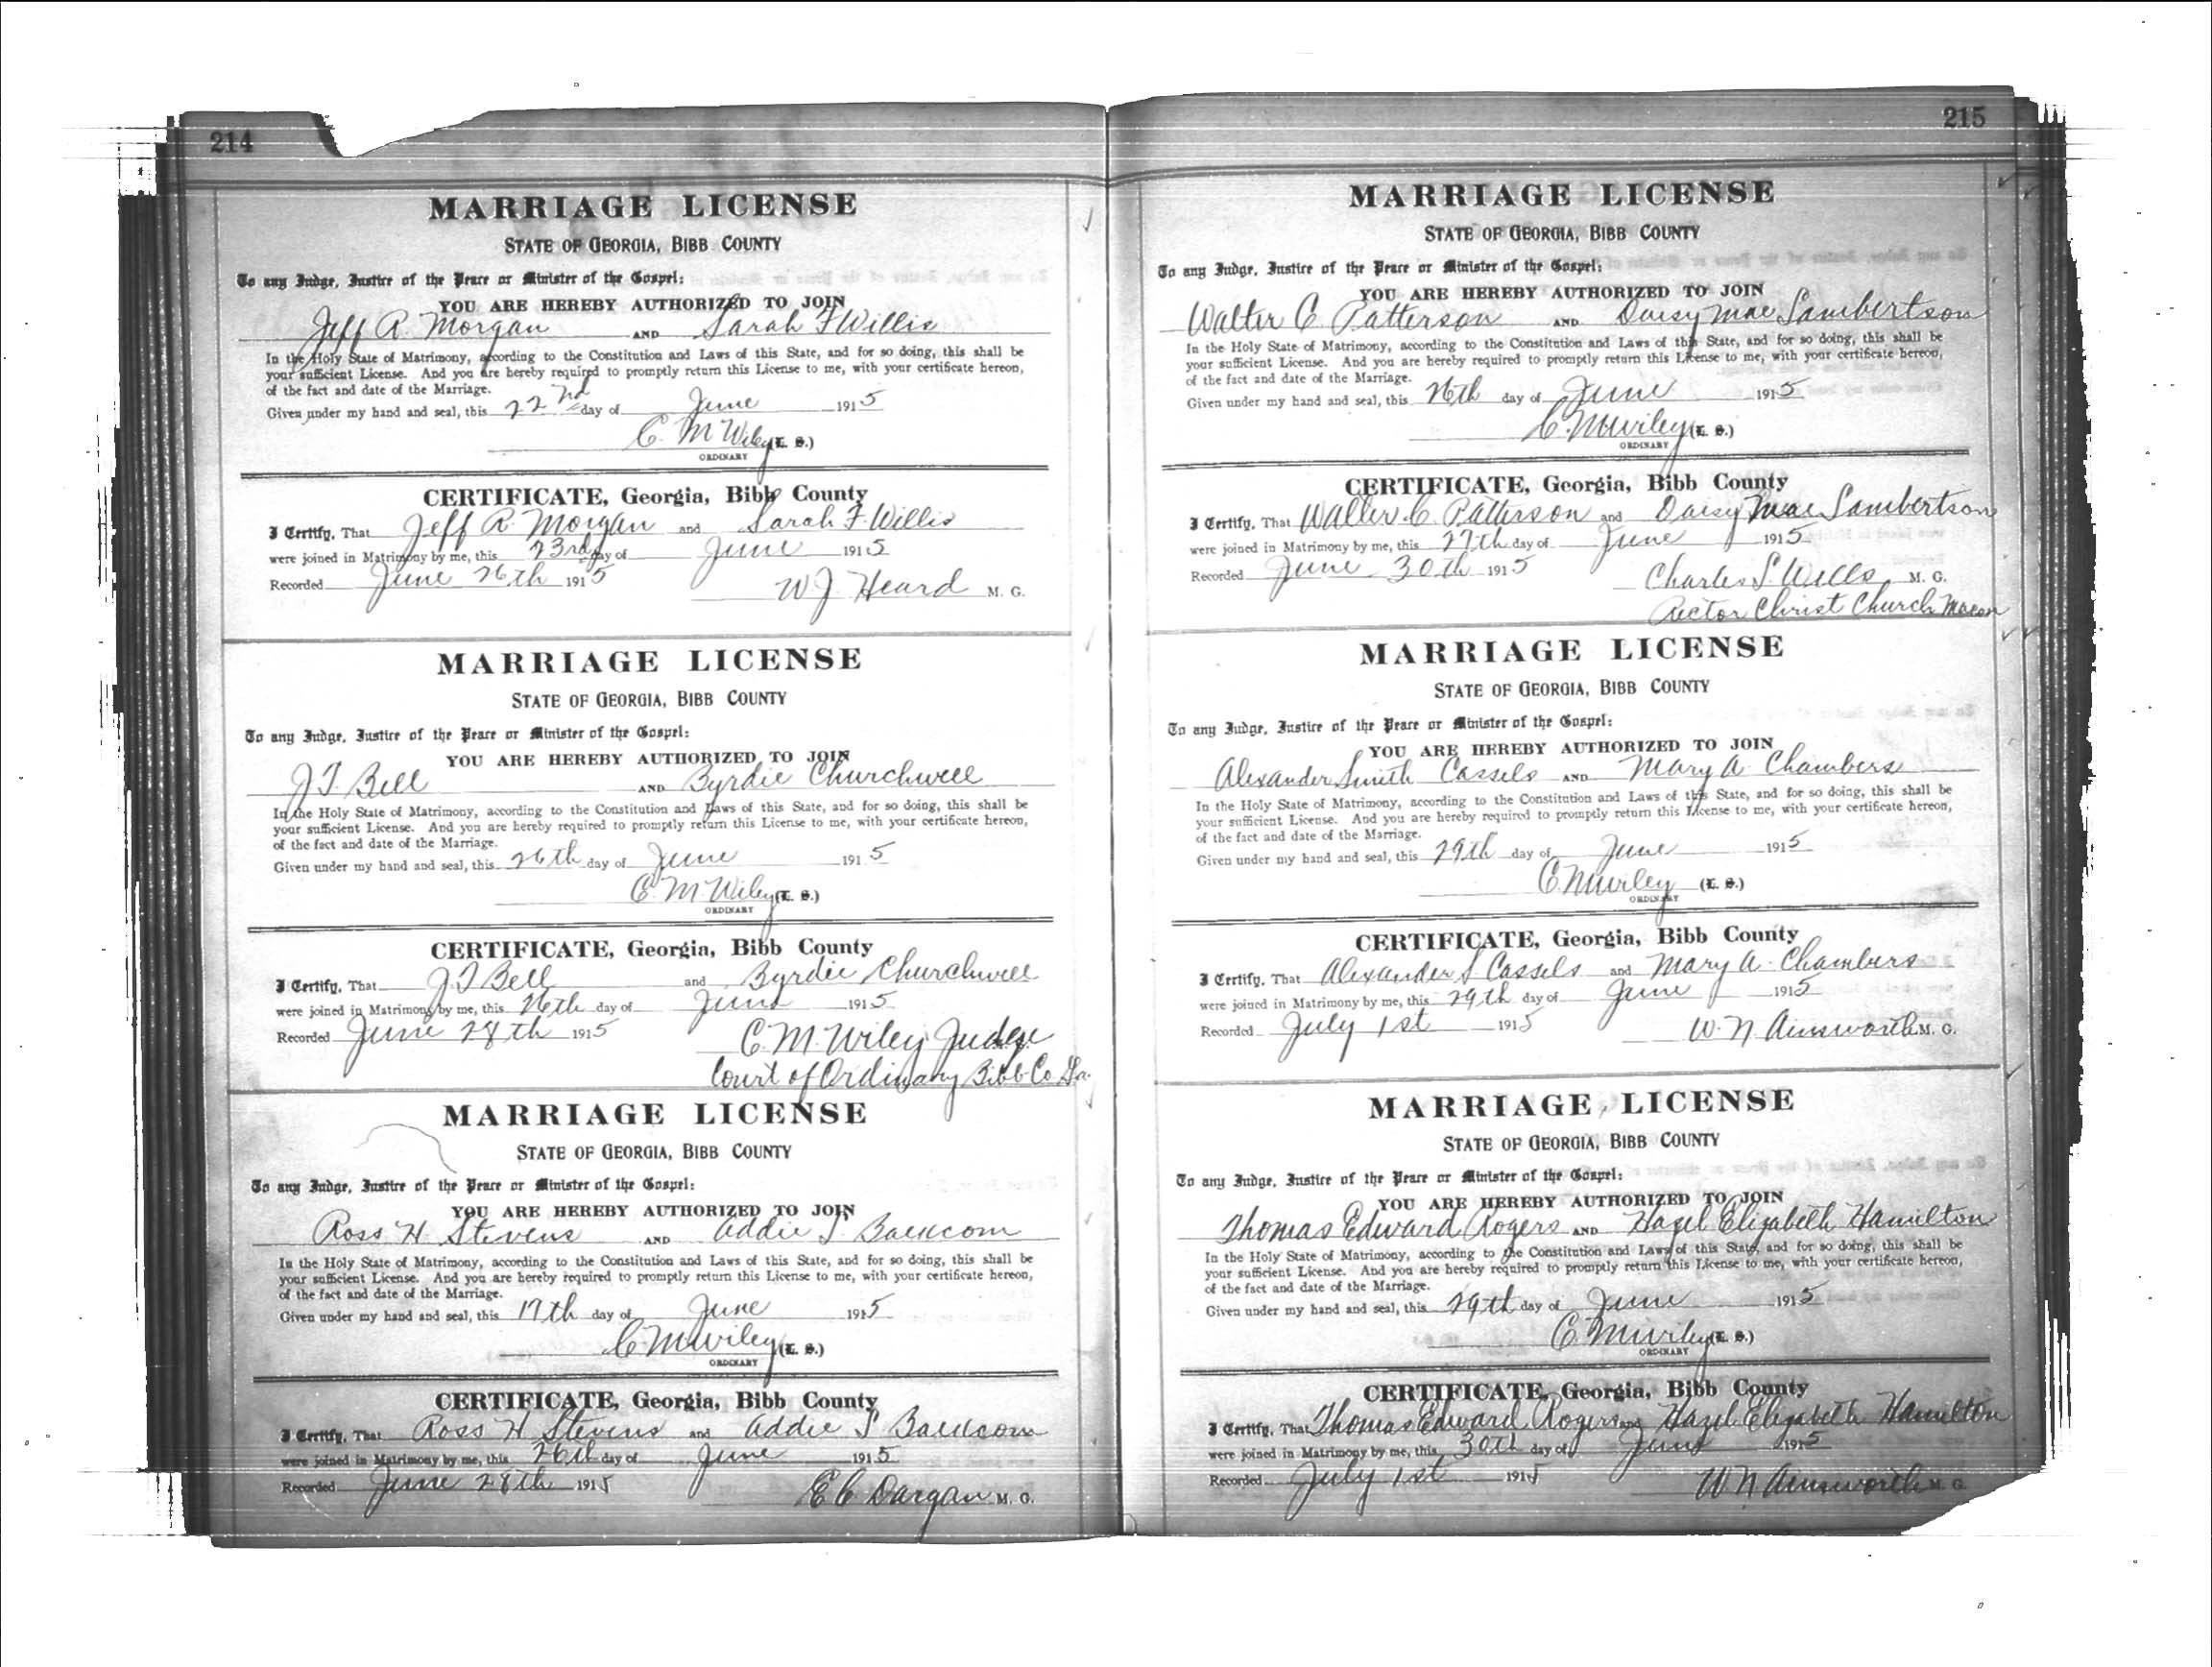 214
MARRIAGE LICENSE
STATE OF GEORGIA, BIBB COUNTY
To any Judge, Justice of the Peace or Minister of the Gospel:
YOU ARE HEREBY AUTHORIZED TO JOIN
Jeff R. Morgan AND Sarah F Willis
In the Holy State of Matrimony, according to the Constitution and Laws of this State, and for so doing, this shall be
your sufficient License. And you are hereby required to promptly return this License to me, with your certificate hereon,
of the fact and date of the Marriage.
Given under my hand and seal, this 22nd day of June 1915
C. M Wiley (L. S.)
ORDINARY
CERTIFICATE, Georgia, Bibb County
I Certify, That Jeff R. Morgan and Sarah F. Willis
were joined in Matrimony by me, this 23rd day of June 1915
Recorded June 26th 1915
W J Heard M. G.
MARRIAGE LICENSE
STATE OF GEORGIA, BIBB COUNTY
To any Judge, Justice of the Peace or Minister of the Gospel:
YOU ARE HEREBY AUTHORIZED TO JOIN
J T. Bell AND Byrdie Churchwell
In the Holy State of Matrimony, according to the Constitution and Laws of this State, and for so doing, this shall be
your sufficient License. And you are hereby required to promptly return this License to me, with your certificate hereon,
of the fact and date of the Marriage.
Given under my hand and seal, this 26th day of June 1915
C. M Wiley (L. S.)
ORDINARY
CERTIFICATE, Georgia, Bibb County
I Certify, That J T Bell and Byrdie Churchwell
were joined in Matrimony by me, this 26th day of June 1915
Recorded June 28th 1915
C. M. Wiley Judge
Court of Ordinary Bibb Co Ga.
MARRIAGE LICENSE
STATE OF GEORGIA, BIBB COUNTY
To any Judge, Justice of the Peace or Minister of the Gospel:
YOU ARE HEREBY AUTHORIZED TO JOIN
Ross H. Stevens AND Addie S. Baucom
In the Holy State of Matrimony, according to the Constitution and Laws of this State, and for so doing, this shall be
your sufficient License. And you are hereby required to promptly return this License to me, with your certificate hereon,
of the fact and date of the Marriage.
Given under my hand and seal, this 17th day of June 1915
C M Wiley (L. S.)
ORDINARY
CERTIFICATE, Georgia, Bibb County
I Certify, That Ross H Stevens and Addie S
were joined in Matrimony by me, this 26th day of June 1915
Recorded June 28th 1915
E C Dargan M. G.
215
MARRIAGE LICENSE
STATE OF GEORGIA, BIBB COUNTY
To any Judge, Justice of the Peace or Minister of the Gospel:
YOU ARE HEREBY AUTHORIZED TO JOIN
Walter C. Patterson AND Daisy Mae Lambertson
In the Holy State of Matrimony, according to the Constitution and Laws of this State, and for so doing, this shall be
your sufficient License. And you are hereby required to promptly return this License to me, with your certificate hereon,
of the fact and date of the Marriage.
Given under my hand and seal, this 26th day of June 1915
C. M Wiley (L. S.)
ORDINARY
CERTIFICATE, Georgia, Bibb County
I Certify, That Walter C. Patterson and Daisy Mae Lambertson
were joined in Matrimony by me, this 27th day of June 1915
Recorded June 30th 1915
Charles S. Wells M. G.
Rector Christ Church Macon
MARRIAGE LICENSE
STATE OF GEORGIA, BIBB COUNTY
To any Judge, Justice of the Peace or Minister of the Gospel:
YOU ARE HEREBY AUTHORIZED TO JOIN
Alexander Smith Cassels AND Mary A. Chambers
In the Holy State of Matrimony, according to the Constitution and Laws of this State, and for so doing, this shall be
your sufficient License. And you are hereby required to promptly return this License to me, with your certificate hereon,
of the fact and date of the Marriage.
Given under my hand and seal, this 29th day of June 1915
C M Wiley (L. S.)
ORDINARY
CERTIFICATE, Georgia, Bibb County
I Certify, That Alexander S Cassels and Mary A. Chambers
were joined in Matrimony by me, this 29th day of June 1915
Recorded July 1st 1915
W. N Ainsworth M. G.
MARRIAGE LICENSE
STATE OF GEORGIA, BIBB COUNTY
To any Judge, Justice of the Peace or Minister of the Gospel:
YOU ARE HEREBY AUTHORIZED TO JOIN
Thomas Edward Rogers AND Hazel Elizabeth Hamilton
In the Holy State of Matrimony, according to the Constitution and Laws of this State, and for so doing, this shall be
your sufficient License. And you are hereby required to promptly return this License to me, with your certificate hereon,
of the fact and date of the Marriage.
Given under my hand and seal, this 29th day of June 1915
C. M Wiley (L. S.)
ORDINARY
CERTIFICATE, Georgia, Bibb County
I Certify, That Thomas Edward Rogers and Hazel Elizabeth Hamilton
were joined in Matrimony by me, this 30th day of June 1915
Recorded July 1st 1915
W N Ainsworth M. G.